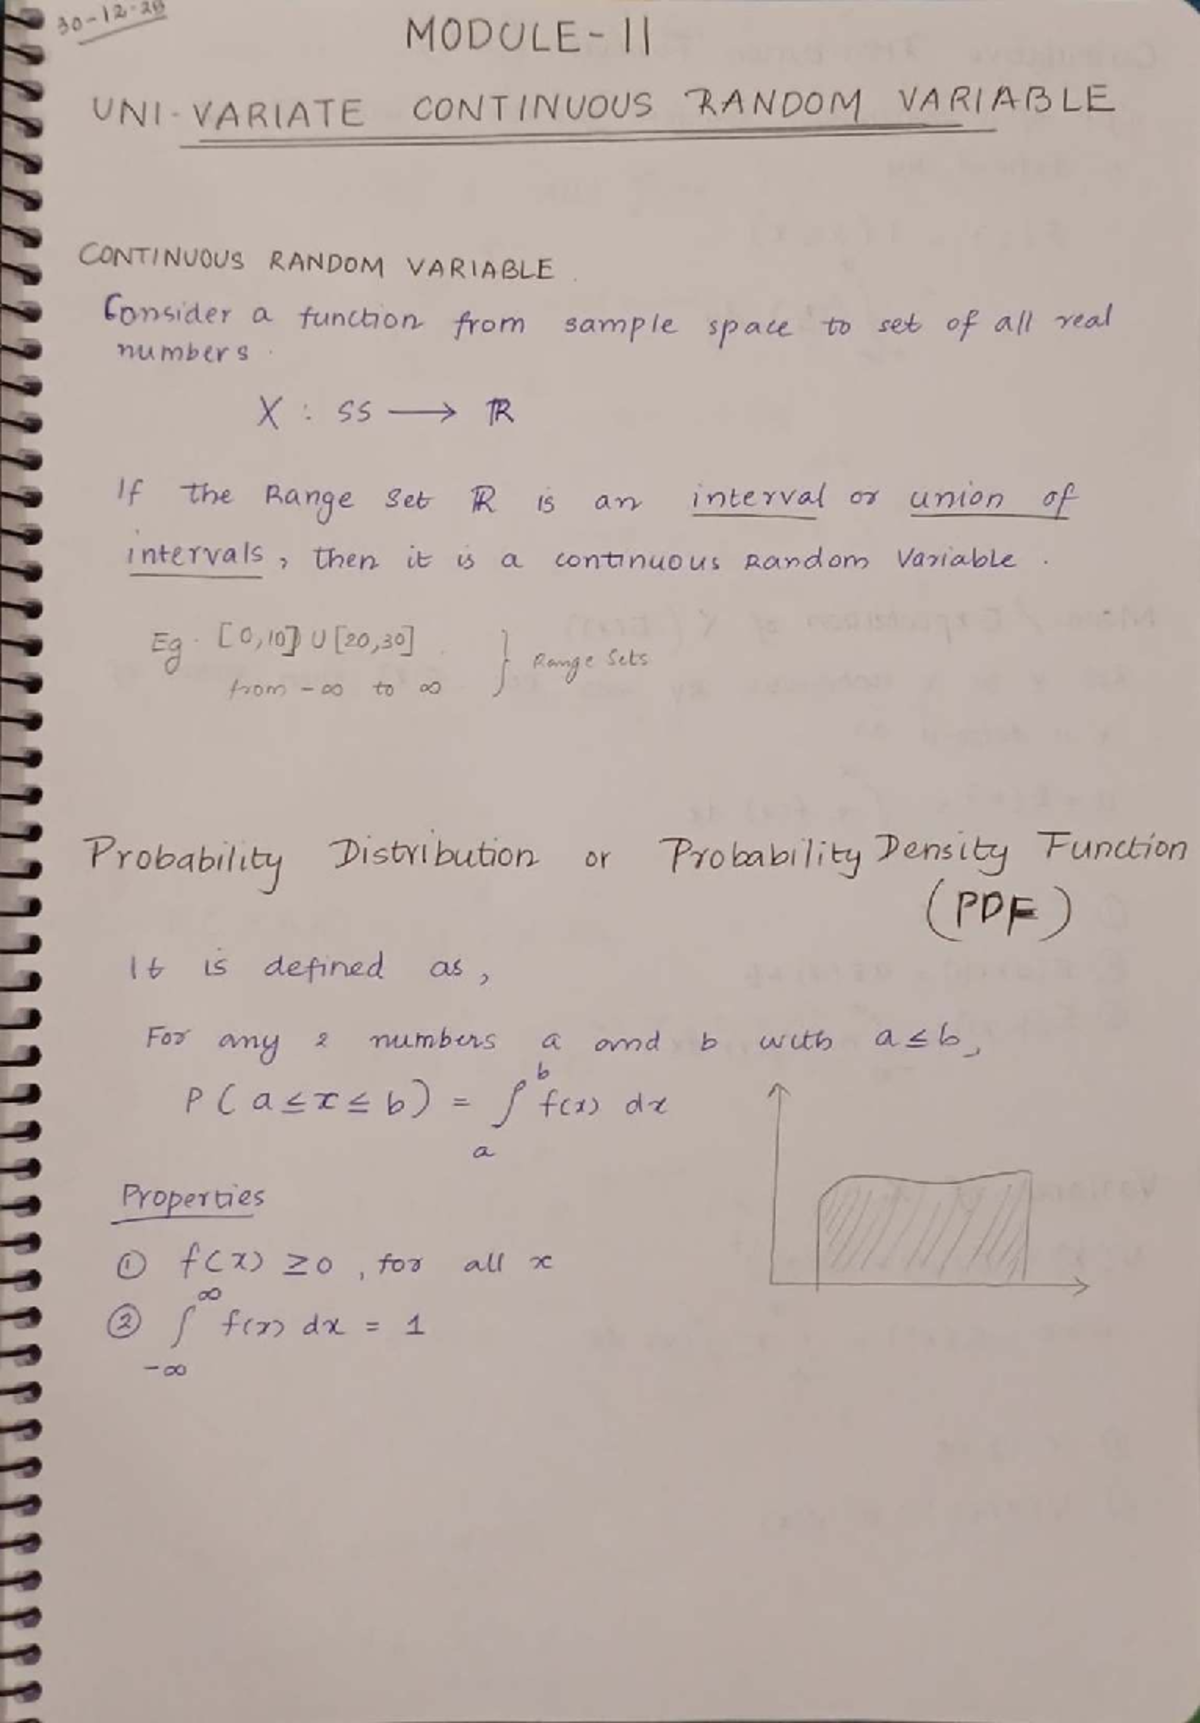 30-12-20
MODULE-II
UNI-VARIATE CONTINUOUS RANDOM VARIABLE
CONTINUOUS RANDOM VARIABLE.
Consider a function from sample space to set of all real
numbers.
X : SS ⟶ ℝ
If the Range Set ℝ is an interval or union of
intervals, then it is a continuous Random Variable.
Eg. [0,10] ∪ [20,30]
from -∞ to ∞ } Range Sets
Probability Distribution or Probability Density Function
(PDF)
It is defined as,
For any 2 numbers a and b with a ≤ b,
P(a ≤ x ≤ b) = ∫_a^b f(x) dx
Properties
① f(x) ≥ 0, for all x
② ∫_{-∞}^{∞} f(x) dx = 1